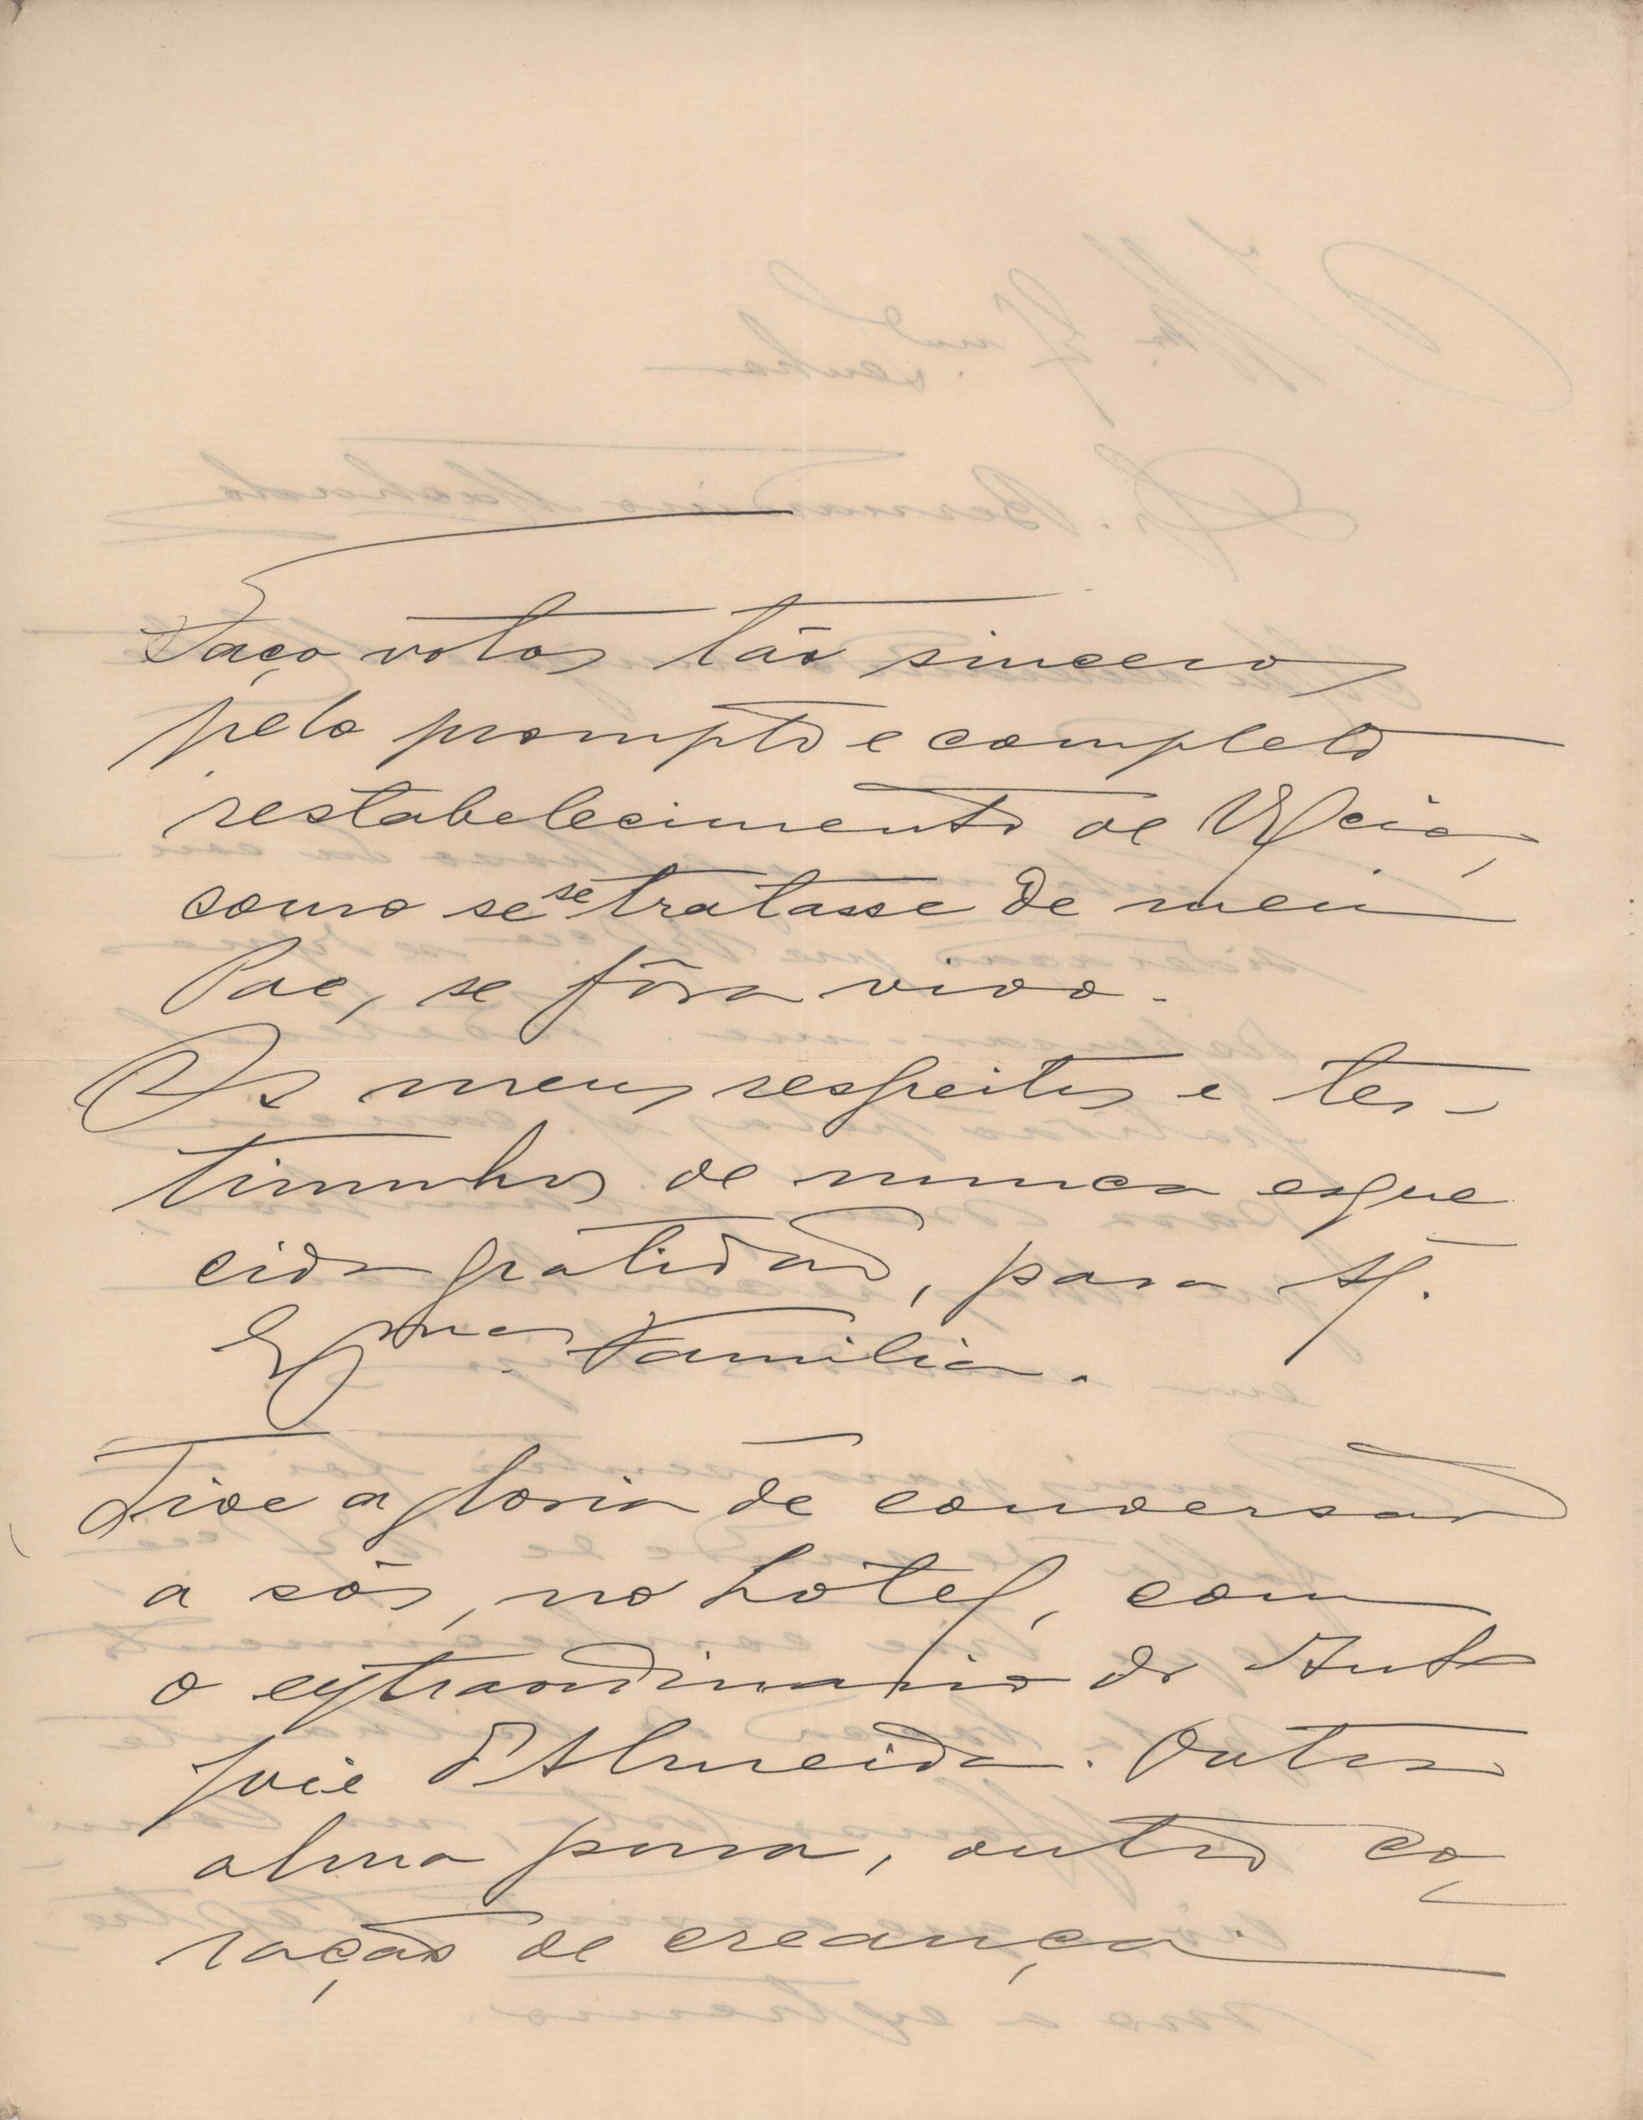 Faço votos tão sinceros
pelo prompto e completo
restabelecimento de VExcia,
como se se tratasse de meu
Pae, se fôra vivo.
Os meus respeitos e tes-
timunhos de nunca esque
cida gratidão, para S.
Exma Familia.
Tive a gloria de conversar
a sós, no hotel, com
o extraordinario dr Anto
José d'Almeida. Outra
alma pura, outro co
ração de creança